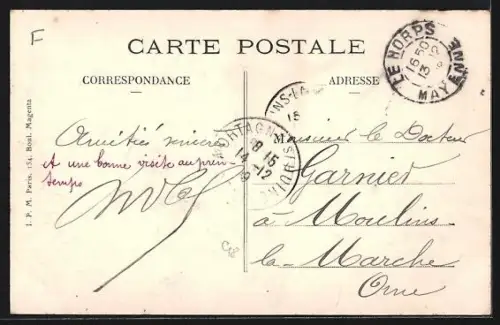 F
CARTE POSTALE
CORRESPONDANCE
ADRESSE
LE HORPS
16 50
13
MAYENNE
NS-LA
15
MORTAGNE
8 15
14 -12
ORNE
I. P. M. Paris, 154, Boul. Magenta
Amitiés
et une bonne visite au prin-
temps
Monsieur le Docteur
Garnier
à Moulins-
la-Marche
Orne